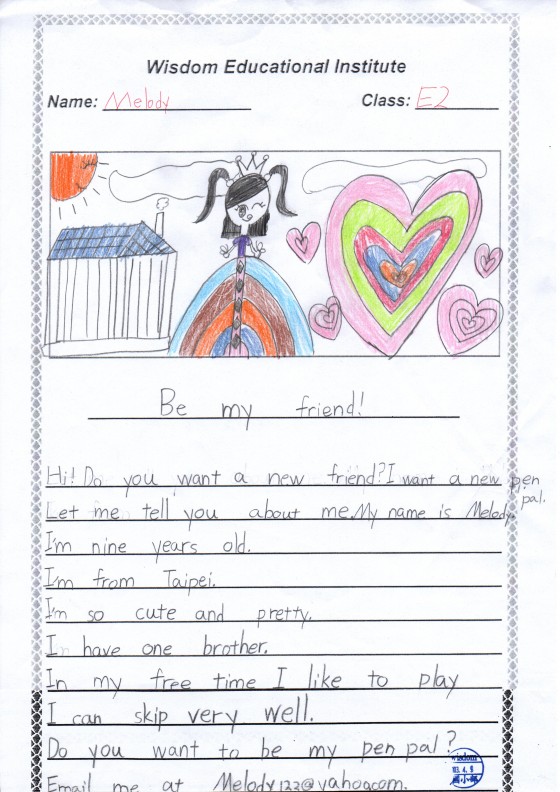 Wisdom Educational Institute
Name: Melody Class: E2
Be my friend!
Hi! Do you want a new friend? I want a new pen pal.
Let me tell you about me. My name is Melody.
I'm nine years old.
I'm from Taipei.
I'm so cute and pretty.
I have one brother.
In my free time I like to play
I can skip very well.
Do you want to be my pen pal?
wisdom
Email me at Melody122@yahoo.com.